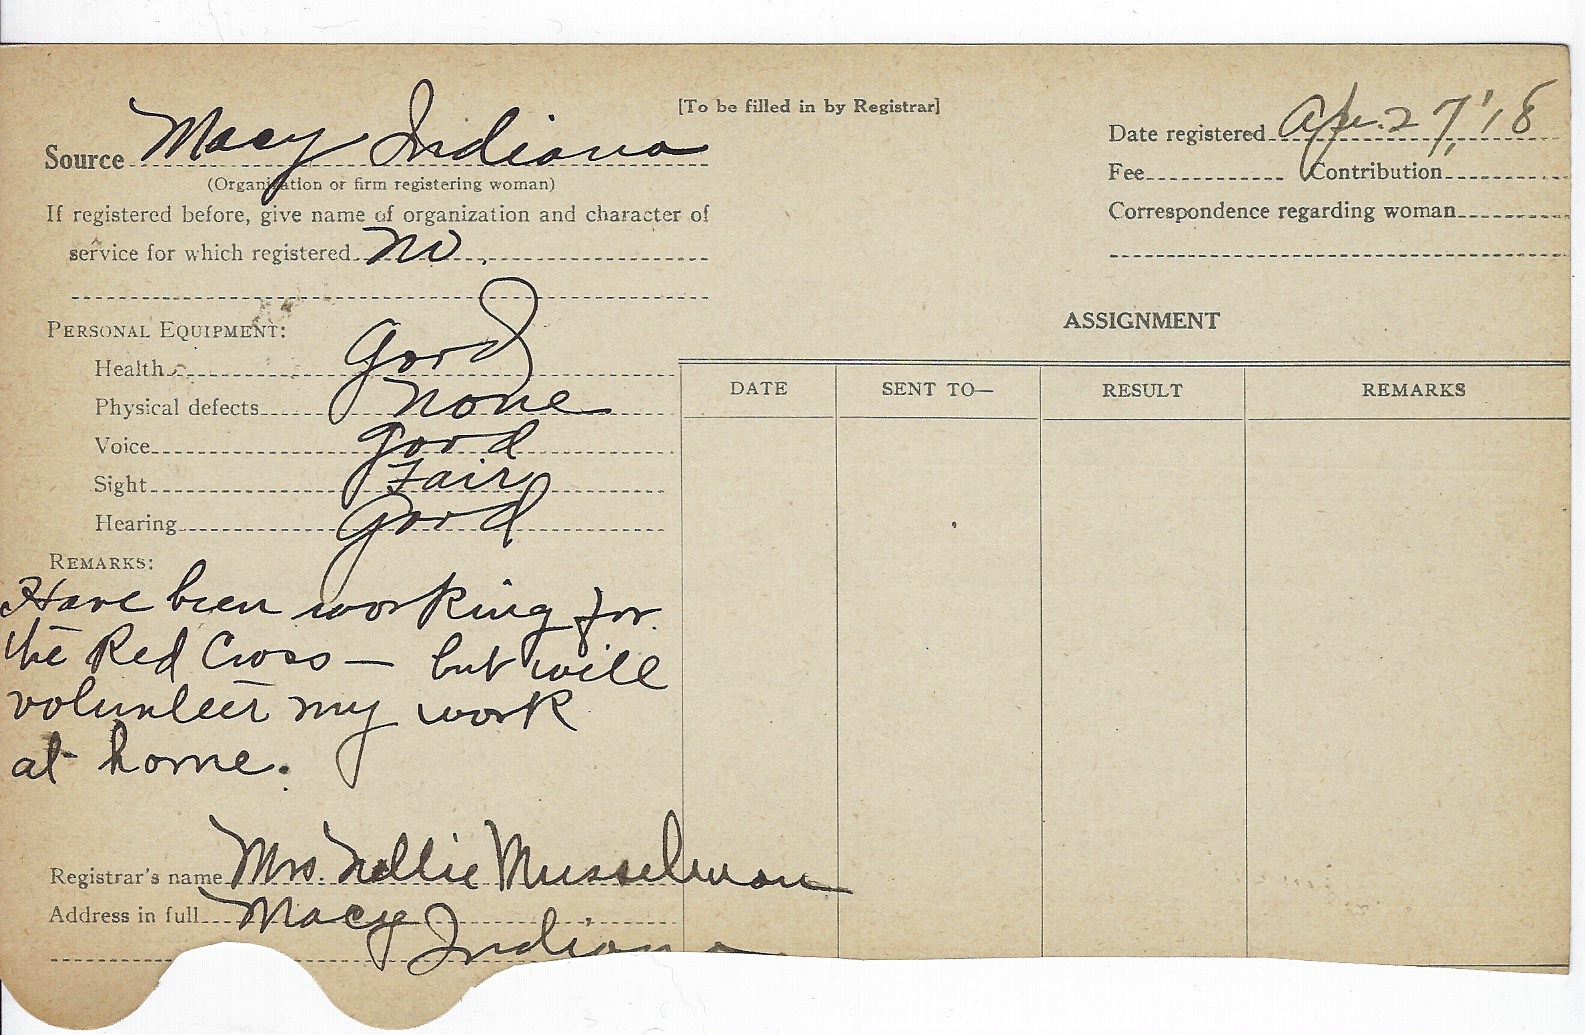 [To be filled in by Registrar]
Source Macy Indiana
(Organization or firm registering woman)
If registered before, give name of organization and character of
service for which registered no.
Date registered Apr. 27, '18
Fee Contribution
Correspondence regarding woman
PERSONAL EQUIPMENT:
Health good
Physical defects none
Voice good
Sight Fair
Hearing good
REMARKS:
Have been working for
the Red Cross — but will
volunteer my work
at home.
Registrar's name Mrs. Nellie Musselman
Address in full Macy
Indiana
ASSIGNMENT
DATE SENT TO— RESULT REMARKS